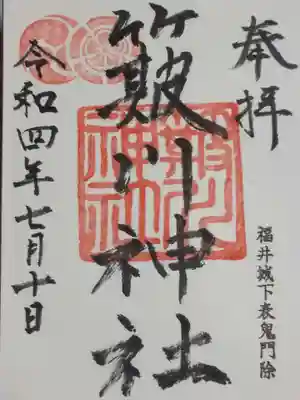 奉拝
福井城下表鬼門除
簸川神社
令和四年七月十日